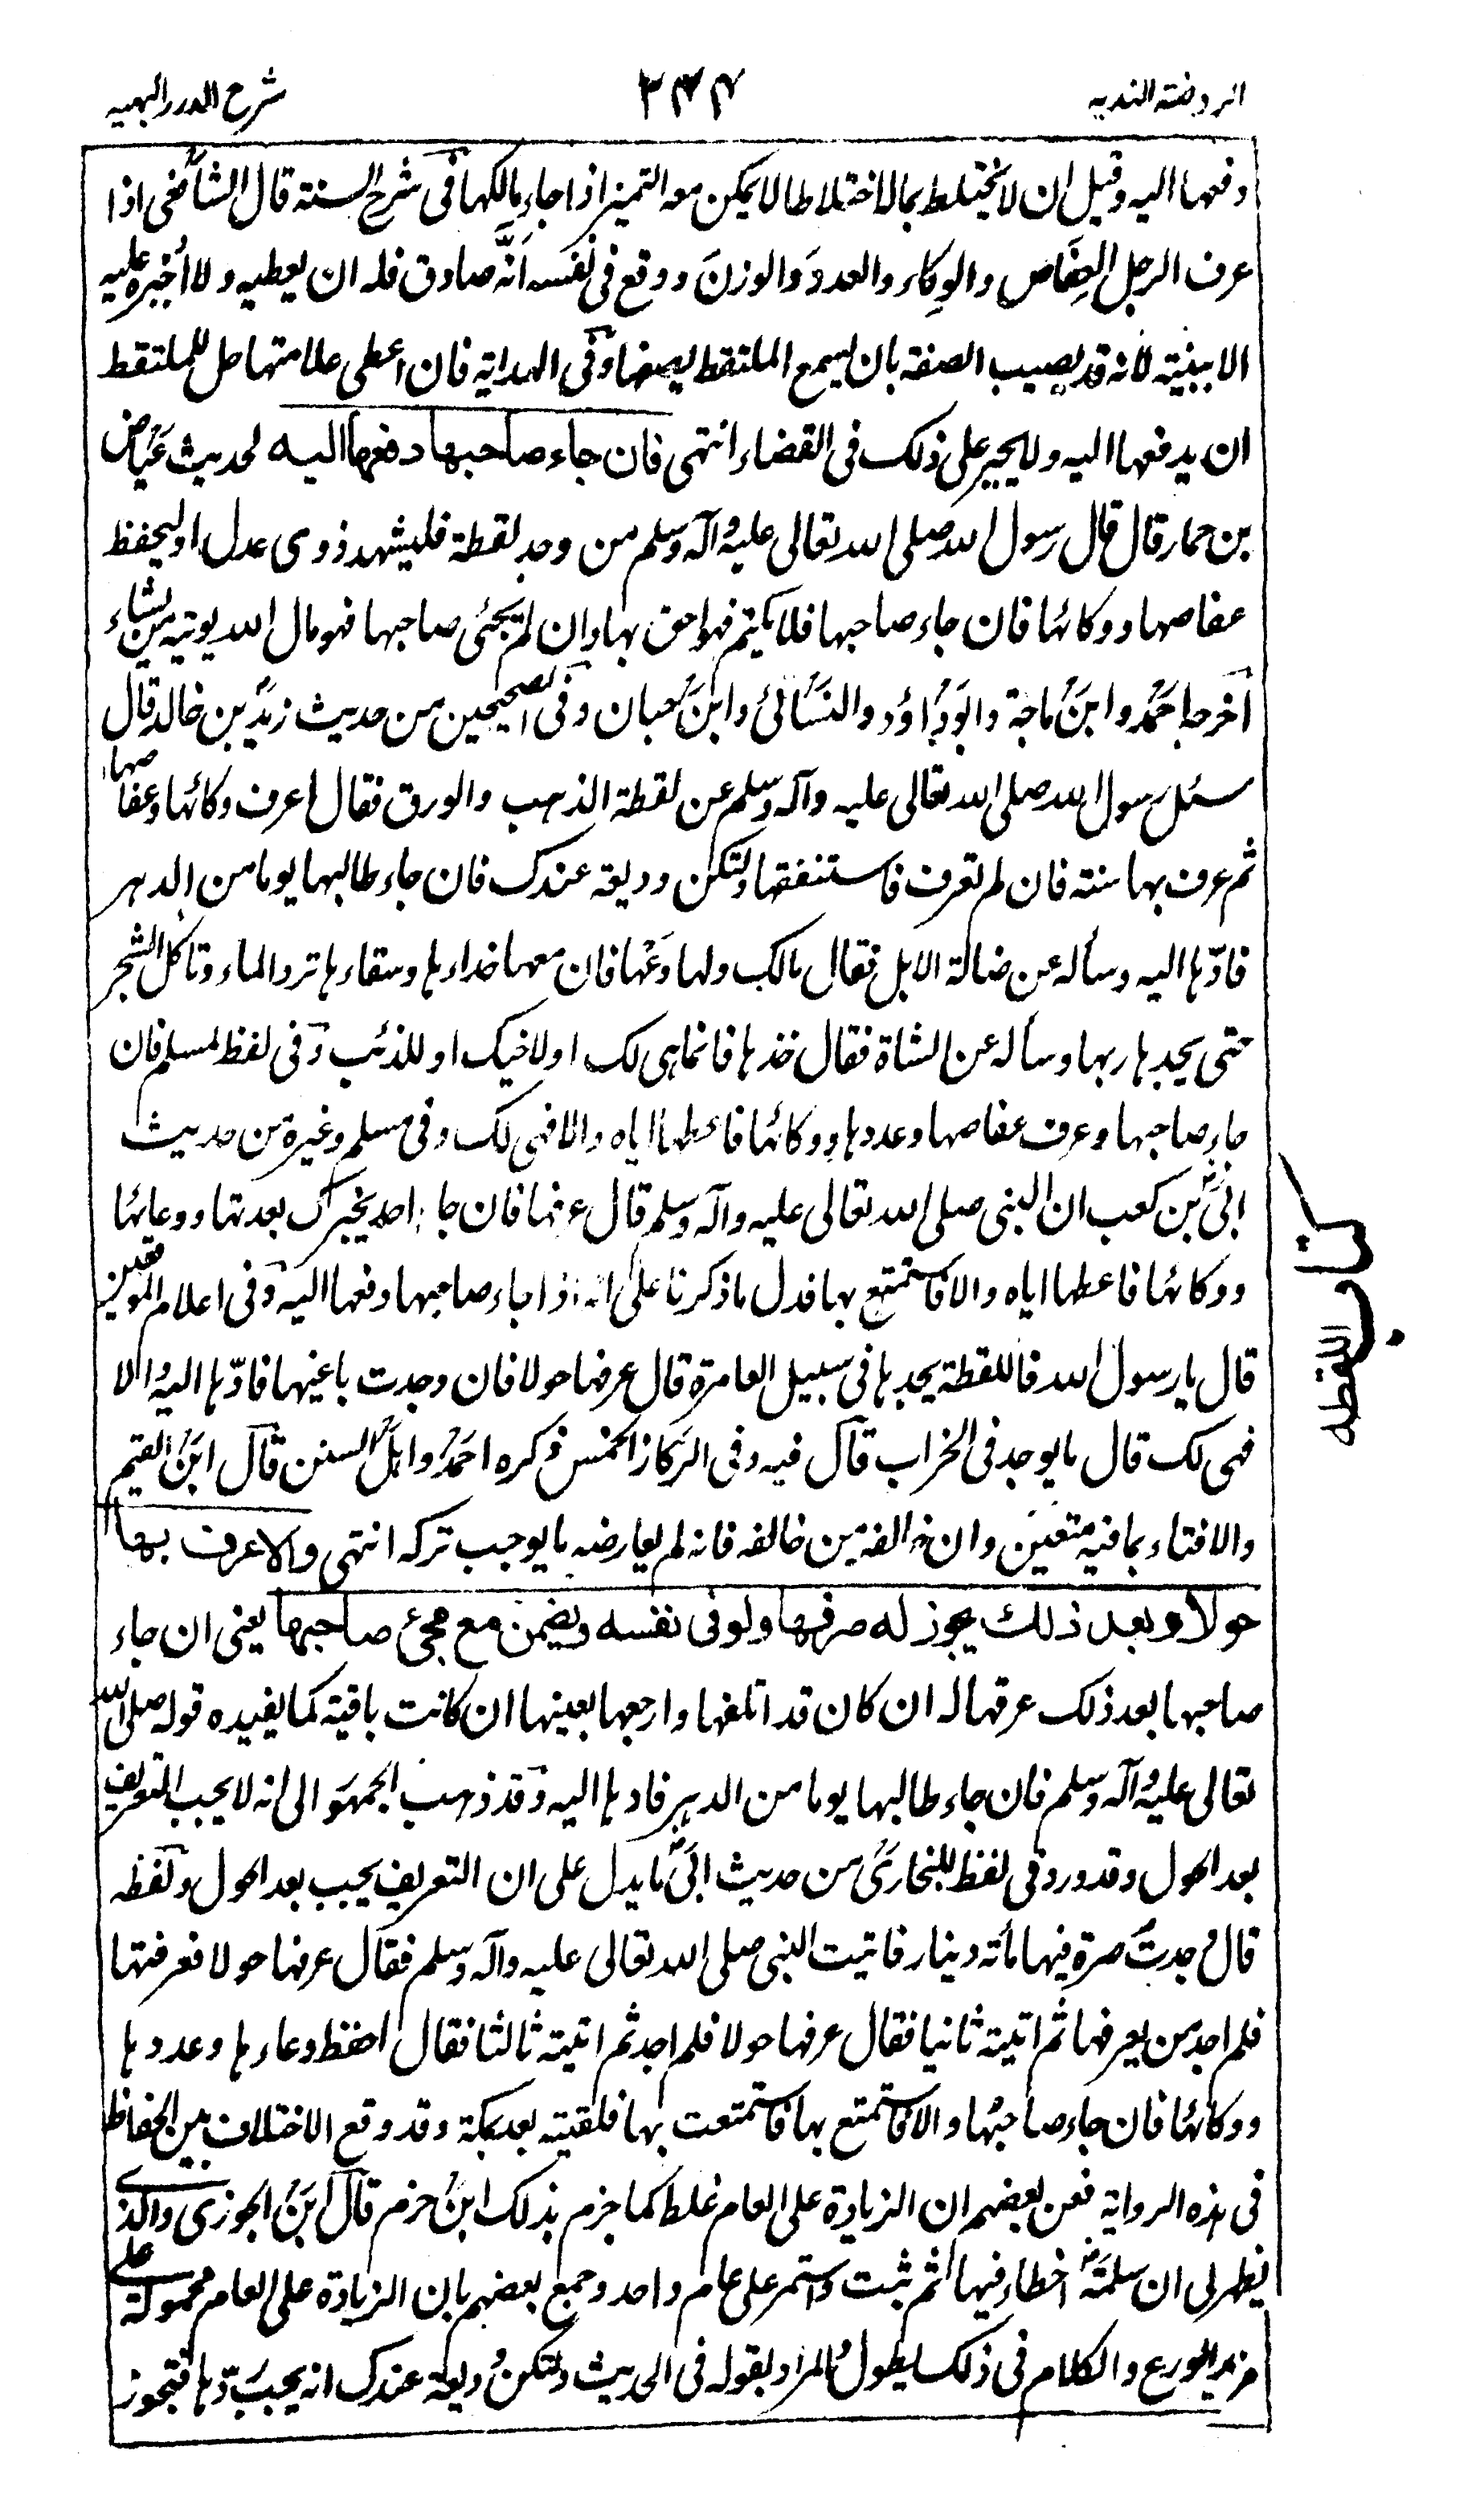 الروضة الندية
٢٤٤
شرح الدرر البهية
دفعها اليه وقيل ان لا يختلط بماله اختلاطا لا يمكن معه التميز اذا جاء مالكها فى شرح السنة قال الشافعى اذا
عرف الرجل العِفَاص والوِكاء والعددَ والوزنَ ووقع فى نفسه انَّه صادق فله ان يعطيه ولا اُجْبره عليه
الا ببينة لانه قد يصيب الصفة بان يسمع الملتقط يصفها وفى الهداية فان اعطى علامتها حل للملتقط
ان يدفعها اليه ولا يجبر على ذلك فى القضاء انتهى فان جاء صاحبها دفعها اليه لحديث عِيَاض
بن حمار قال قال رسول الله صلى الله تعالى عليه وآله وسلم من وجد لقطة فليشهد ذوى عدل او ليحفظ
عفاصها ووكائها فان جاء صاحبها فلا يكتم فهو احق بها وان لم يجئ صاحبها فهو مال الله يوتيه من يشاء
اخرجه احمَدُ وابنُ ماجة وابوداؤد والنسَائى وابنُ حبان وفى الصحيحين من حديث زيد بن خالد قال
سئل رسول الله صلى الله تعالى عليه وآله وسلم عن لقطة الذهب والورق فقال اعرف وكائها وعفاصها
ثم عرف بها سنة فان لم تعرف فاستنفقها ولتكن وديعة عندك فان جاء طالبها يوما من الدهر
فادّها اليه وسأله عن ضالة الابل فقال مالك ولها دَعْها فان معها حذاءها وسقاءها ترد الماء وتاكل الشجر
حتى يجدها ربها وسأله عن الشاة فقال خذها فانما هى لك او لاخيك او للذئب وفى لفظ لمسلم فان
جاء صاحبها وعرف عفاصها وعددها ووكائها فاعطها اياه والا فهى لك وفى مسلم وغيره من حديث
ابىّ بن كعب ان النبى صلى الله تعالى عليه وآله وسلم قال عرفها فان جاء احد يخبرك بعدتها ووعائها
ووكائها فاعطها اياه والا فاستمتع بها فدل ما ذكرنا على انه اذا جاء صاحبها دفعها اليه وفى اعلام الموقعين
قال يا رسول الله فاللقطة يجدها فى سبيل العامرة قال عرفها حولا فان وجدت باغيها فادّها اليه والا
فهى لك قال ما يوجد فى الخراب قال فيه وفى الركاز الخمس ذكره احمدُ واهلُ السنن قال ابنُ القيم
والافتاء بما فيه متعين وان خالفه من خالفه فانه لم يعارضه ما يوجب تركه انتهى والا عرف بها
حولا وبعد ذلك يجوز له صرفها ولو فى نفسه ويضمن مع مجئ صاحبها يعنى ان جاء
صاحبها بعد ذلك عرفها له ان كان قد اتلفها وارجعها بعينها ان كانت باقية كما يفيده قوله صلى الله
تعالى عليه وآله وسلم فان جاء طالبها يوما من الدهر فادها اليه وقد ذهب الجمهور الى انه لا يجب التعريف
بعد الحول وقد ورد فى لفظ للبخارى من حديث ابىّ ما يدل على ان التعريف يجب بعد الحول ولفظه
قال وجدت صرة فيها مأته دينار فاتيت النبى صلى الله تعالى عليه وآله وسلم فقال عرفها حولا فعرفتها
فلم اجد من يعرفها ثم اتيته ثانيا فقال عرفها حولا فلم اجد ثم اتيته ثالثا فقال احفظ وعاءها وعددها
ووكائها فان جاء صاحبُها والا فاستمتع بها فاستمتعت بها فلقيته بعد بمكة وقد وقع الاختلاف بين الحفاظ
فى هذه الرواية فعن بعضهم ان الزيادة على العام غلط كما جزم بذلك ابنُ حزم قال ابنُ الجوزى والذى
يظهر لى ان سلمة اخطاء فيها ثم ثبت واستمر على عام واحد وجمع بعضهم بان الزيادة على العام محمولة على
مزيد الورع والكلام فى ذلك يطول المراد بقوله فى الحديث ولتكن وديعة عندك انه يجب ردّها فتجوز
كتاب اللقطه